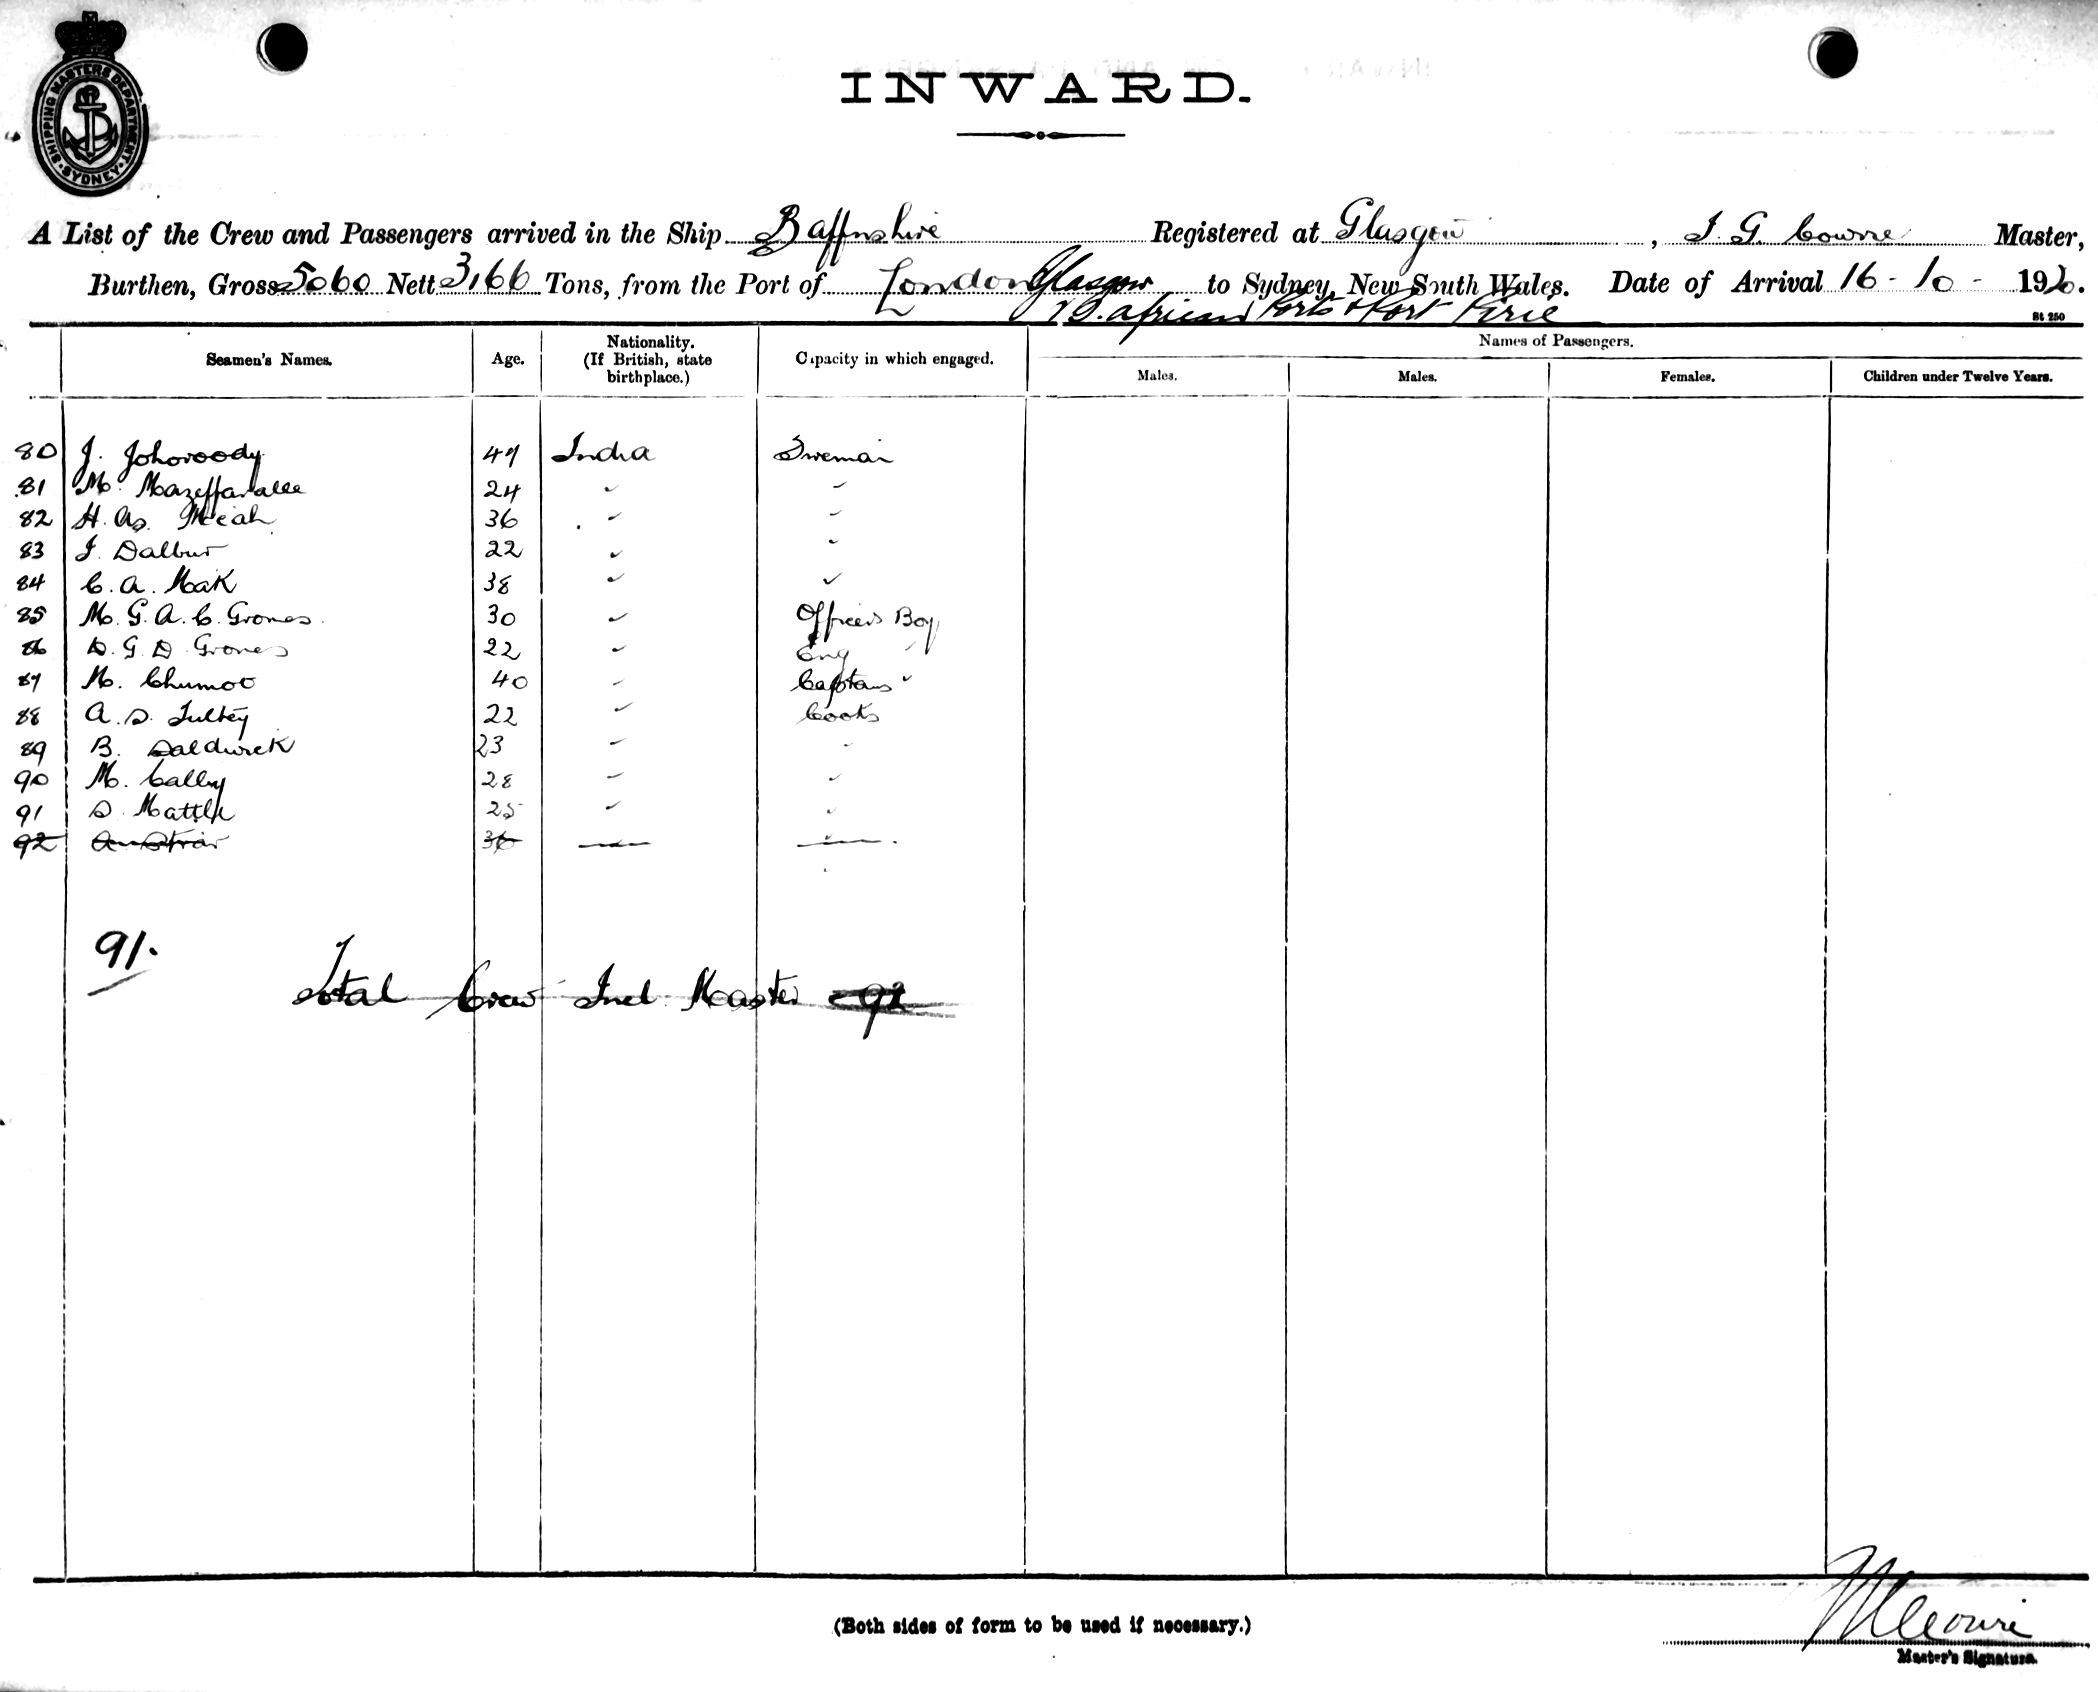 SHIPPING MASTERS DEPARTMENT
SYDNEY
INWARD.
A List of the Crew and Passengers arrived in the Ship Banffshire Registered at Glasgow, J. G. Cowrie Master,
Burthen, Gross 5060 Nett 3,166 Tons, from the Port of London Glasgow to Sydney, New South Wales. Date of Arrival 16-10-1920.
& S. African Ports & Port Pirie
St 250
Seamen's Names. Age. Nationality. (If British, state birthplace.) Capacity in which engaged. Names of Passengers.
Males. Males. Females. Children under Twelve Years.
80 J. Johoroody 47 India Firemen
81 M. Mazeffaralee 24 " "
82 H. As. Meeah 36 " "
83 J. Dalbur 22 " "
84 C. A. Mak 38 " "
85 M. G. A. C. Gromes 30 " Officers Boy
86 D. G. D. Gromes 22 " Eng "
87 M. Chumoo 40 " Captains "
88 A. S. Fulbey 22 " Cooks
89 B. Daldwick 23 " "
90 M. Calley 28 " "
91 S. Mattle 25 " "
92 36
91.
Total Crew Incl Master 92
(Both sides of form to be used if necessary.)
Cowrie
Master's Signature.